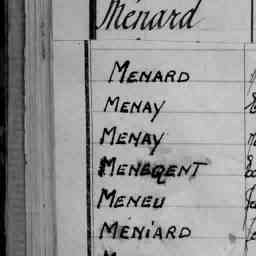 Ménard
MENARD
MENAY
MENAY
MENEGENT
MENEU
MENIARD